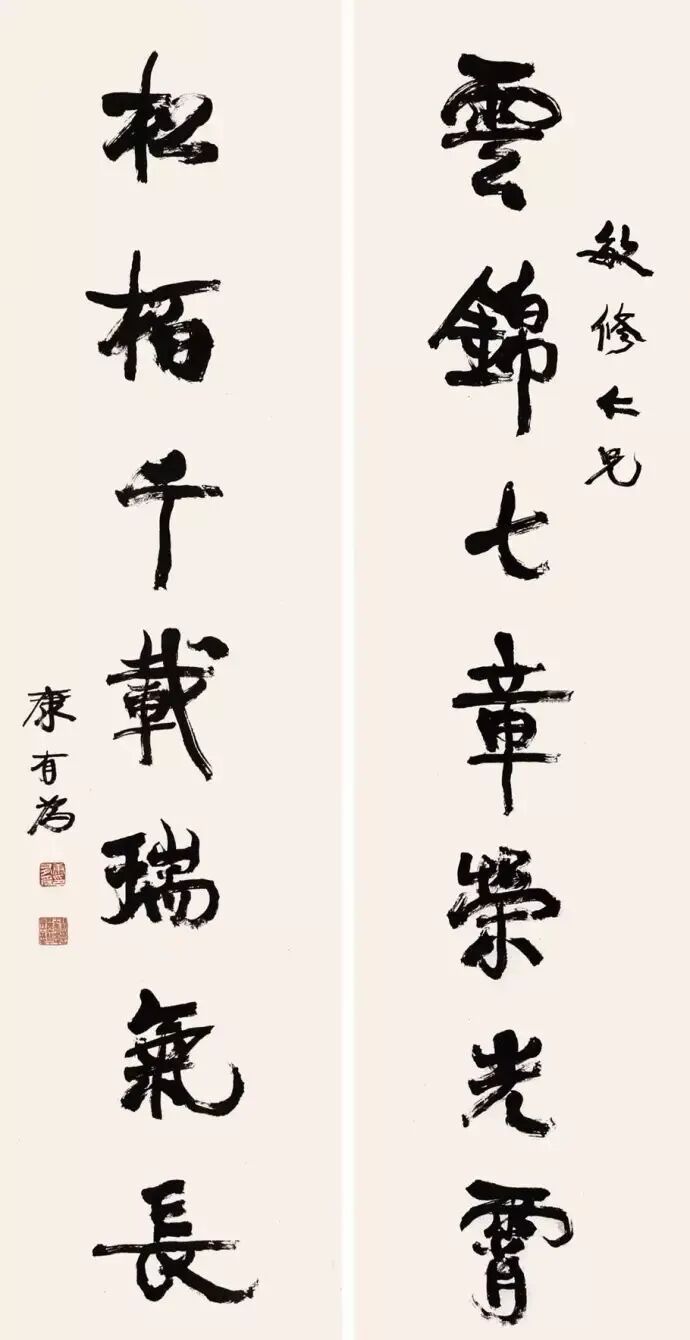 敏修仁兄
雲錦七章榮光霄
松栢千載瑞氣長
康有為